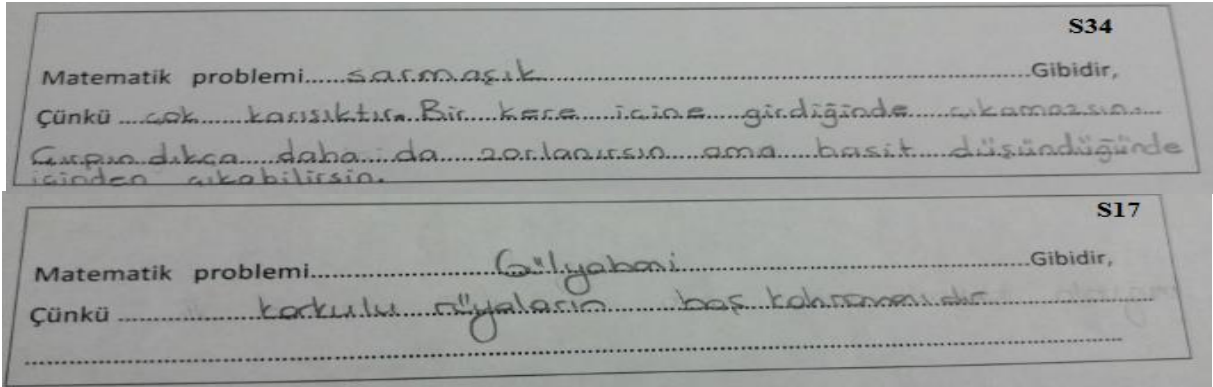 S34
Matematik problemi......sarmaşık......Gibidir,
Çünkü ....çok.....karışıktır. Bir kere içine girdiğinde çıkamazsın.
Çırpındıkça daha da zorlanırsın ama basit düşündüğünde
içinden çıkabilirsin.
S17
Matematik problemi......Gülyabani......Gibidir,
Çünkü ......korkulu rüyaların baş kahramanıdır